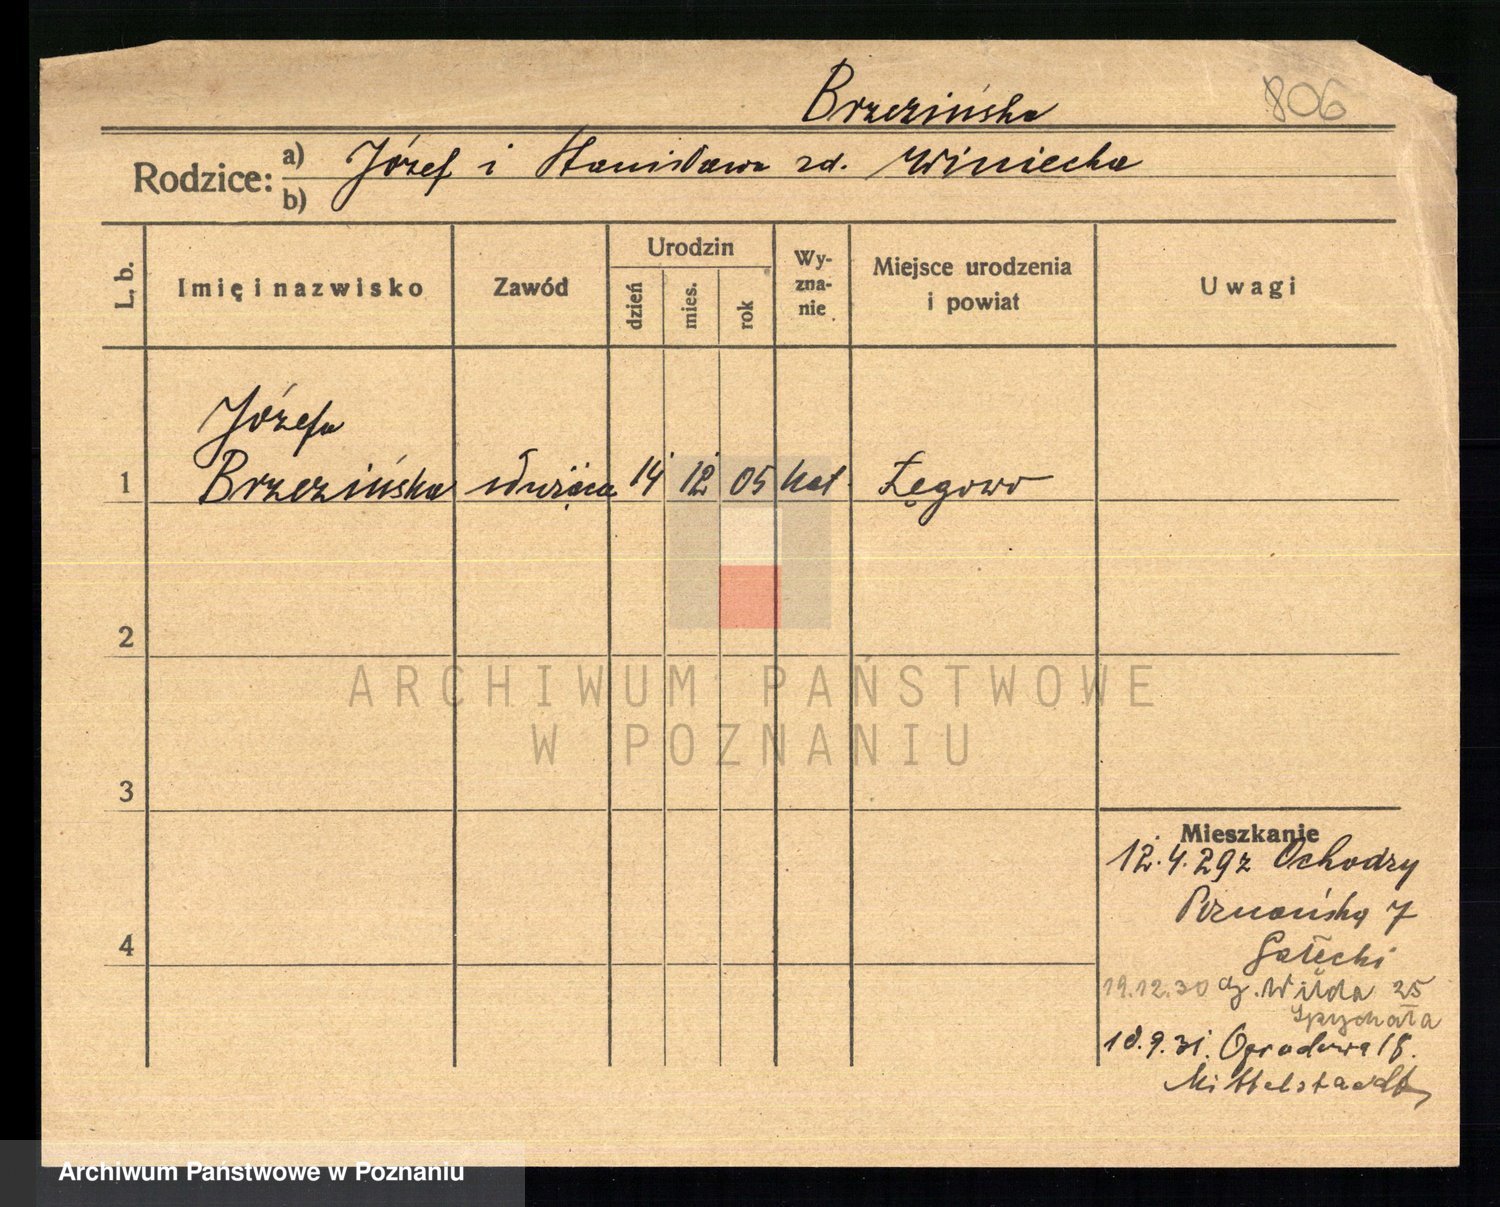 Brzezińska
806
Rodzice: a) Józef i Stanisława zd. Winiecka
b)
L. b.
Imię i nazwisko
Zawód
Urodzin
dzień
mies.
rok
Wy-
zna-
nie
Miejsce urodzenia
i powiat
Uwagi
Józefa
1 Brzezińska służąca 14 12 05 kat. Łęgowo
2
ARCHIWUM PAŃSTWOWE
W POZNANIU
3
4
Mieszkanie
12.4.29 z Ochodzy
Poznańska 7
Gałecki
19.12.30 g. Wilda 25
Spychała
18.9.31. Ogrodowa 18.
Mittelstaedt
Archiwum Państwowe w Poznaniu